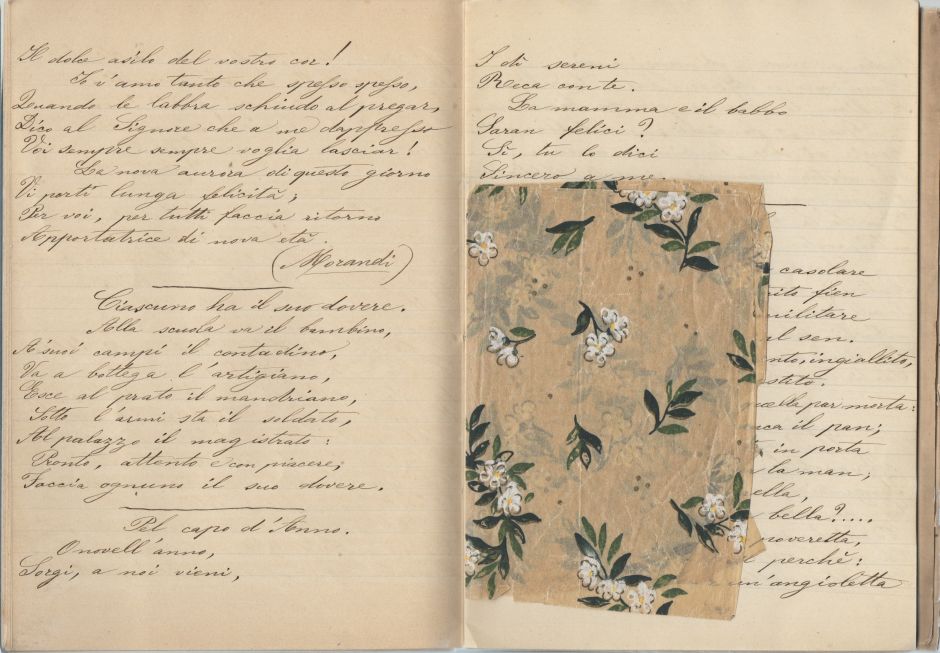 Il dolce asilo del vostro cor!
Io v'amo tanto che spesso spesso,
Quando le labbra schiudo al pregar,
Dico al Signore che a me dappresso
Voi sempre sempre voglia lasciar!
La nova aurora di questo giorno
Vi porti lunga felicità;
Per voi, per tutti faccia ritorno
Apportatrice di nova età.
(Morandi)
Ciascuno ha il suo dovere.
Alla scuola va il bambino,
A' suoi campi il contadino,
Va a bottega l'artigiano,
Esce al prato il mandriano,
Sotto l'armi sta il soldato,
Al palazzo il magistrato:
Pronto, attento e con piacere,
Faccia ognuno il suo dovere.
Pel capo d'Anno.
O novell'anno,
Sorgi, a noi vieni,
I dì sereni
Reca con te.
La mamma e il babbo
Saran felici?
Sì, tu lo dici
Sincero a me.
casolare
fien
militare
sen.
ingiallito,
par morta:
il pan;
in porta
la man;
bella?....
poveretta,
perchè:
un'angioletta